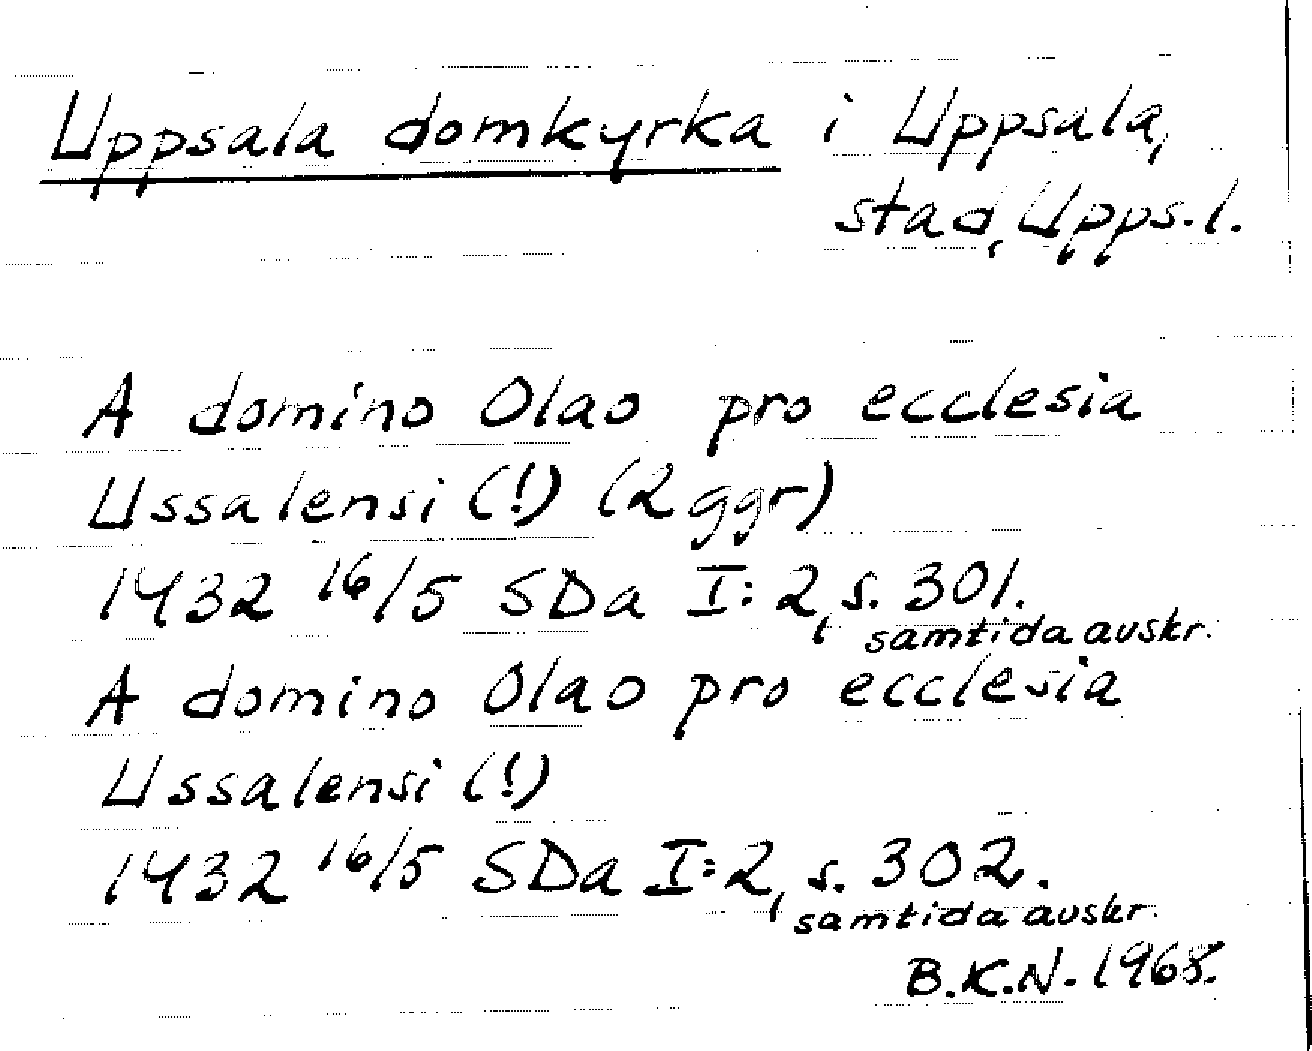 Uppsala domkyrka i Uppsala,
stad, Upps. l.
A domino Olao pro ecclesia
Ussalensi (!) (2 ggr)
1432 16/5 SDa I:2, s. 301.
samtida avskr.
A domino Olao pro ecclesia
Ussalensi (!)
1432 16/5 SDa I:2, s. 302.
samtida avskr.
B.K.N. 1968.